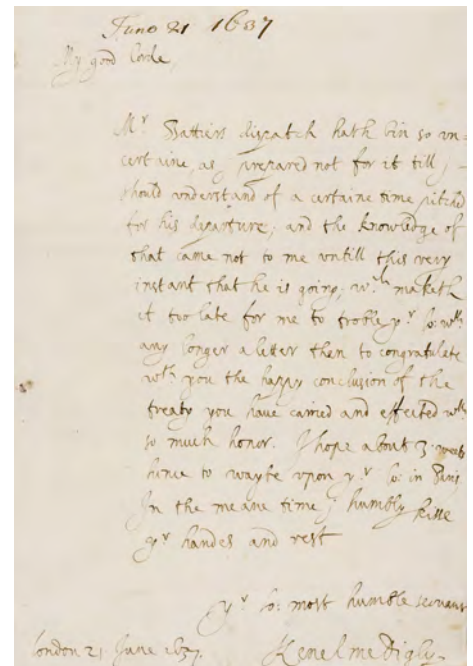 Juno 21 1637
My good Lorde,
Mr. Battiers dispatch hath bin so un=
certaine, as j prepared not for it till j
should understand of a certaine time pitched
for his departure; and the knowledge of
that came not to me untill this very
instant that he is going; wch. maketh
it too late for me to troble yr. lo: wth.
any longer a letter then to congratulate
wth. you the happy conclusion of the
treaty you have carried and effected wth.
so much honor. I hope about 3. weeks
hence to wayte upon yr. lo: in Paris
In the meane time j humbly kisse
yr. handes and rest
yr. lo: most humble servant
London 21. June 1637. Kenelme Digby.